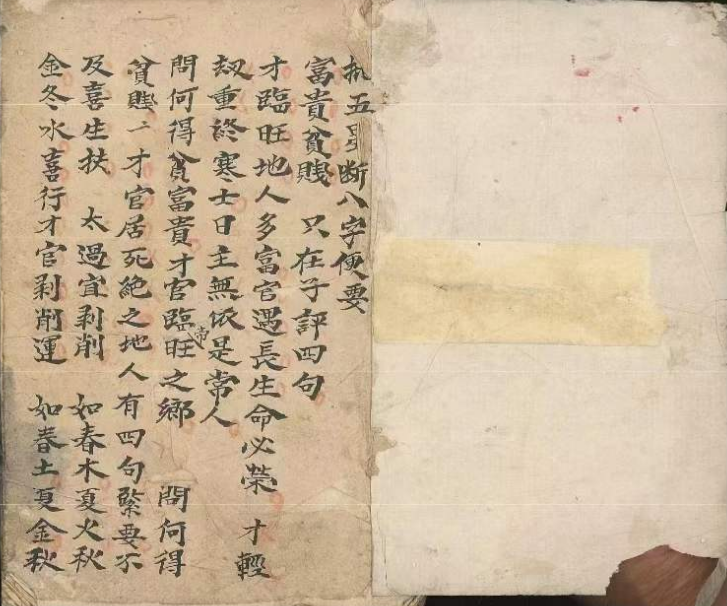 批五星断八字便要
富貴貧賤 只在子評四句
才臨旺地人多富官遇長生命必榮 才輕
刼重終寒士日主無依是常人
問何得貧富貴才官臨旺之鄉 問何得
貧賤亠才官居死絶之地人有四句緊要不
及喜生扶 太過宜剥削 如春木夏火秋
金冬水喜行才官剥削運 如春土夏金秋